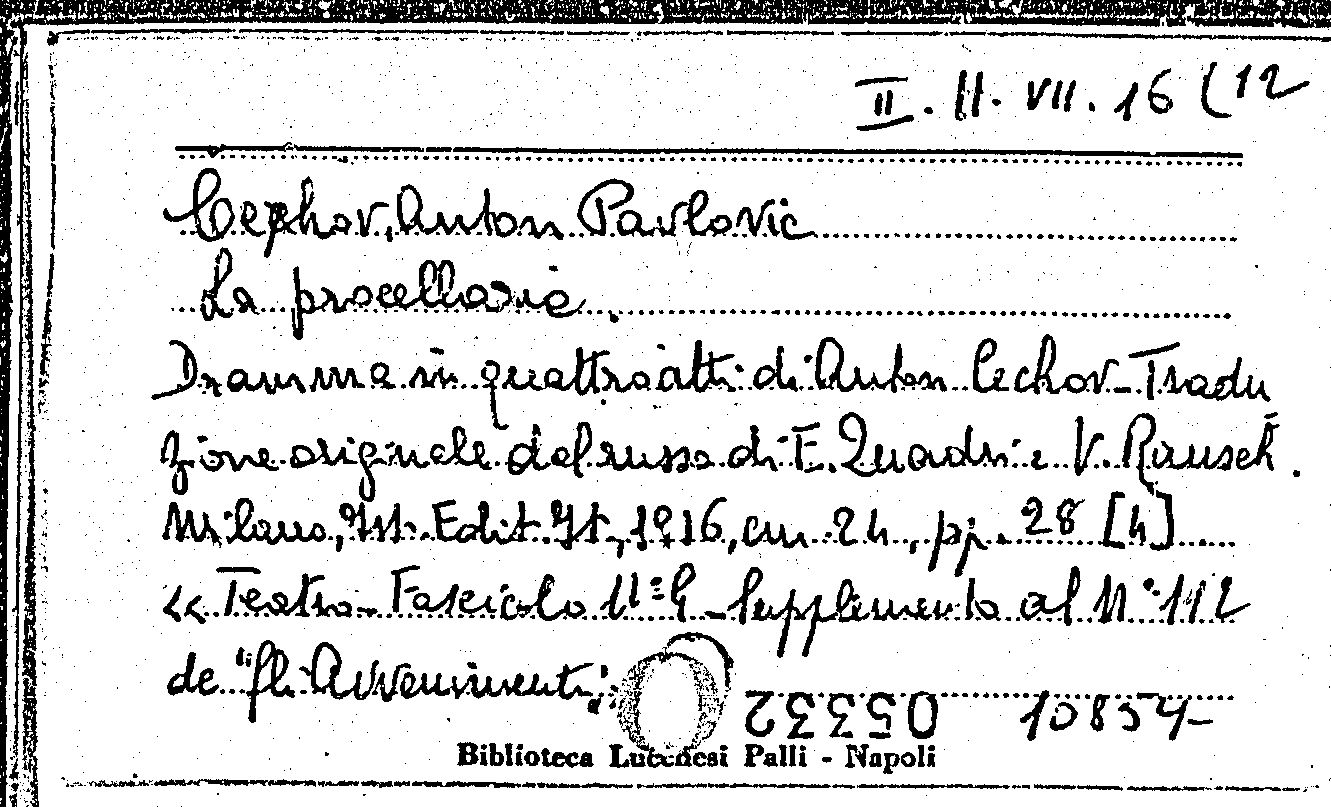 II. II. VII. 16 (12
Cechov, Anton Pavlovic
La procellaria.
Dramma in quattro atti di Anton Cechov - Tradu
zione originale dal russo di E. Quadri e V. Rausch.
Milano, Ist. Edit. It., 1916, cm. 24, pp. 28 [4]
<< Teatro - Fascicolo Supplemento al N° 112
de "Gli Avvenimenti"
05332 10854
Biblioteca Lucchesi Palli - Napoli